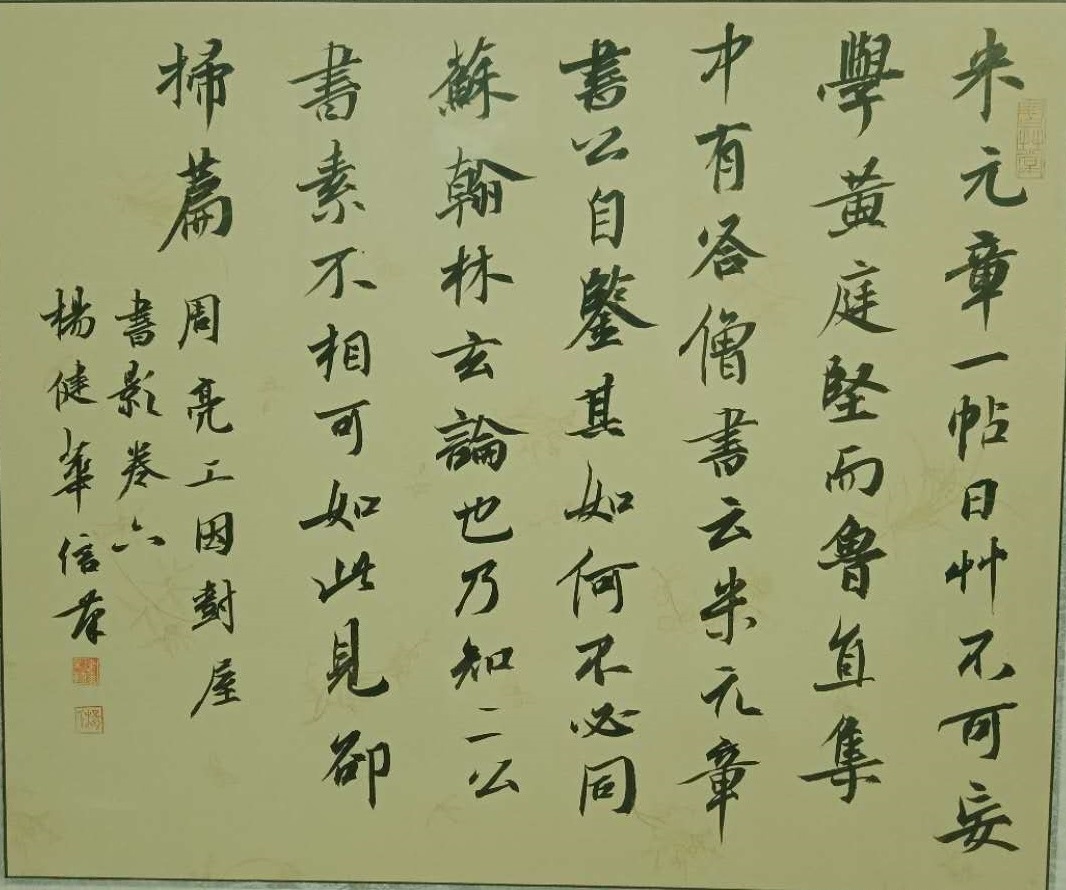 米元章一帖曰艸不可妄
學黃庭堅而魯直集
中有答僧書云米元章
書公自鑒其如何不必同
蘇翰林玄論也乃知二公
書素不相可如此見郤
掃篇
周亮工因對屋
書影卷六
楊健華信筆